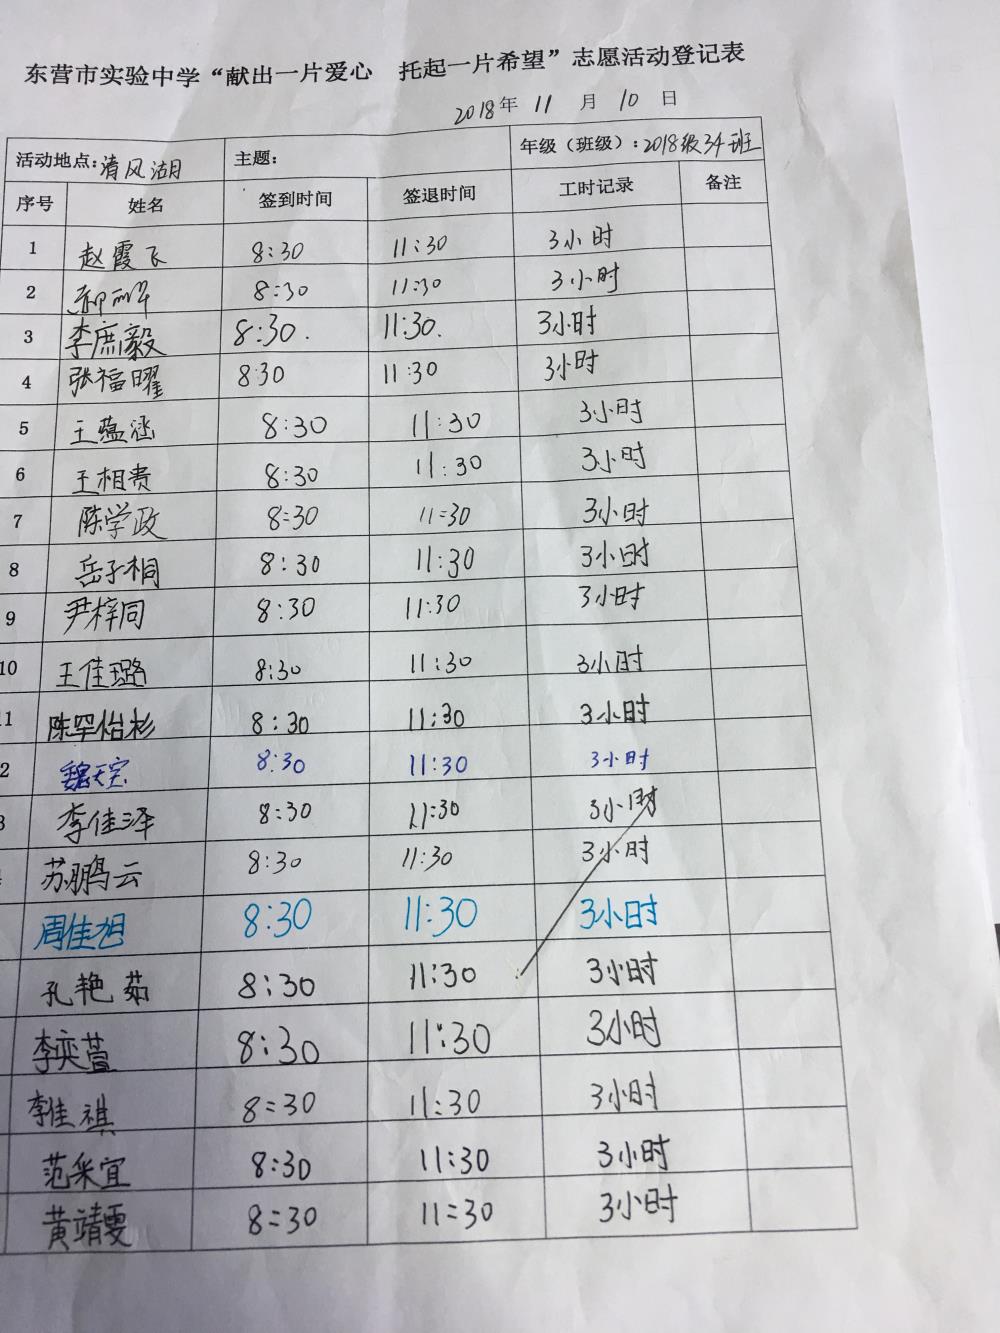 东营市实验中学“献出一片爱心 托起一片希望”志愿活动登记表
2018年 11 月 10 日
活动地点:清风湖 主题: 年级（班级）:2018级34班
序号 姓名 签到时间 签退时间 工时记录 备注
1 赵霞飞 8:30 11:30 3小时
2 8:30 11:30 3小时
3 李庶毅 8:30. 11:30. 3小时
4 张福曜 8:30 11:30 3小时
5 王蕴涵 8:30 11:30 3小时
6 王相贵 8:30 11:30 3小时
7 陈学政 8:30 11:30 3小时
8 岳子桐 8:30 11:30 3小时
9 尹梓同 8:30 11:30 3小时
10 王佳璐 8:30 11:30 3小时
1 陈罕怡杉 8:30 11:30 3小时
2 魏天宝 8:30 11:30 3小时
3 李佳泽 8:30 11:30 3小时
苏鹏云 8:30 11:30 3小时
周佳旭 8:30 11:30 3小时
孔艳茹 8:30 11:30 3小时
李奕萱 8:30 11:30 3小时
李佳祺 8:30 11:30 3小时
范采宜 8:30 11:30 3小时
黄靖雯 8:30 11:30 3小时